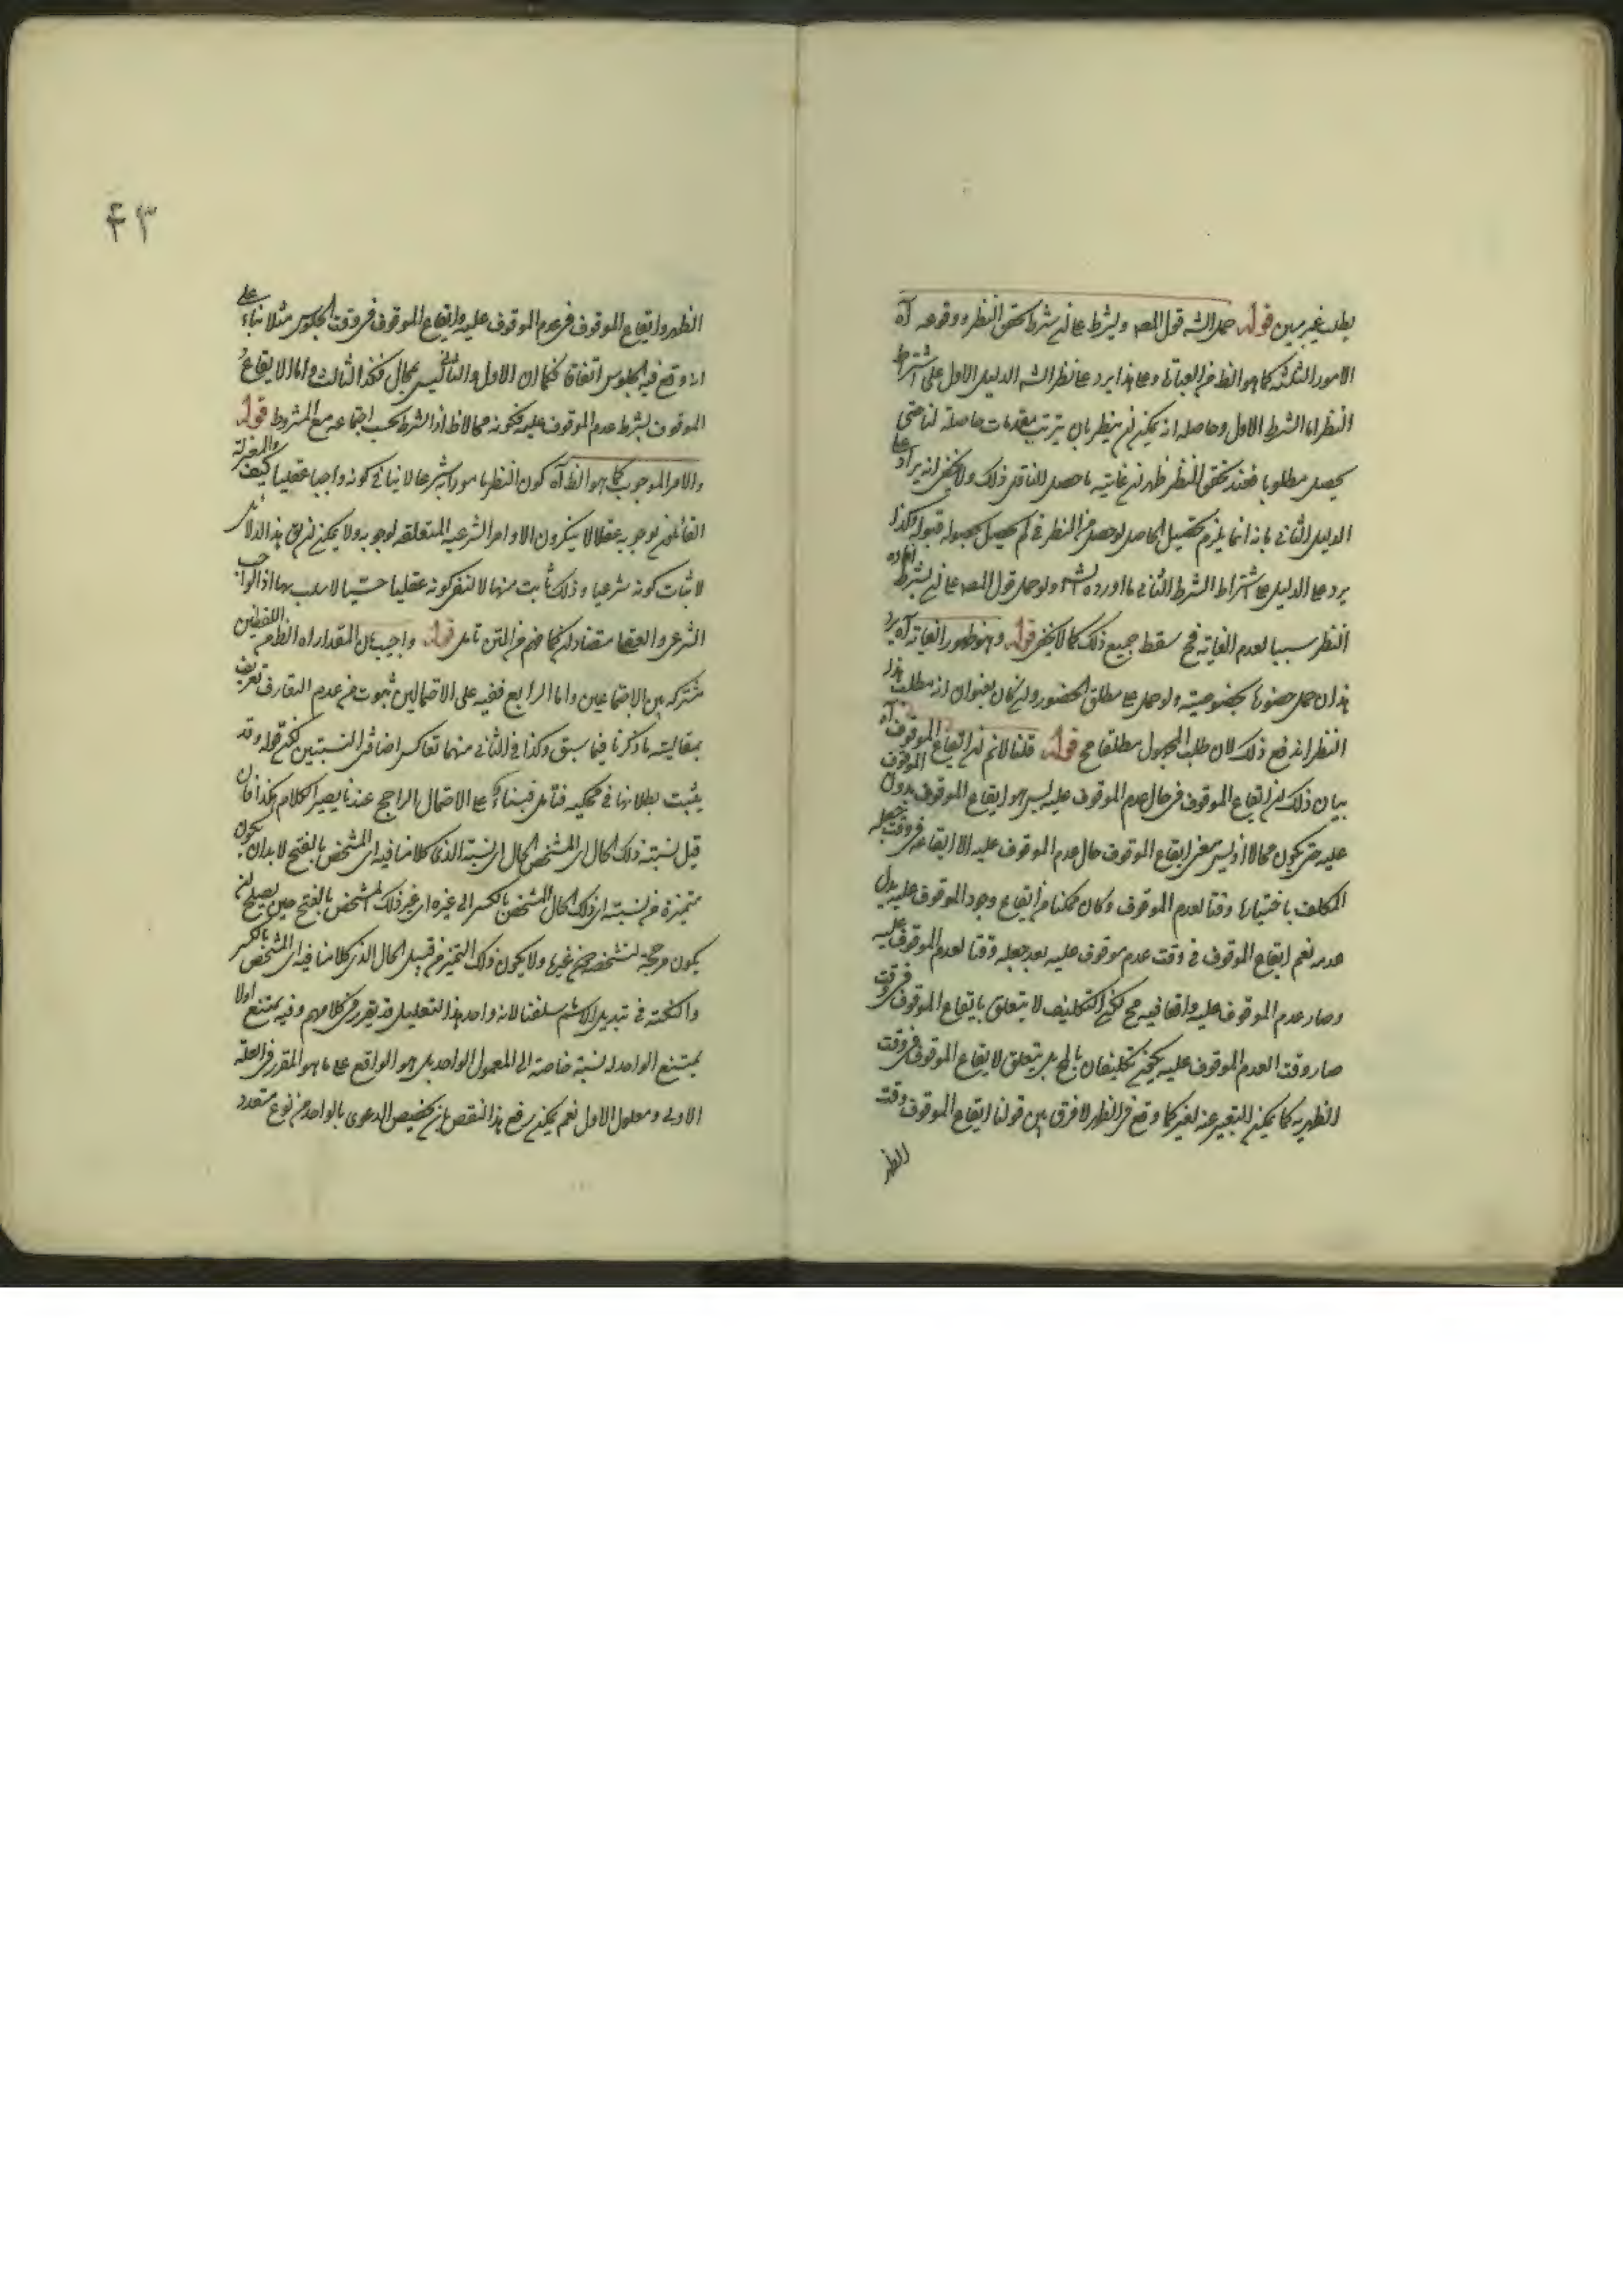 يطلب غير مبين قوله حمل الشه قول المصه ويشرط على شرط تحقق النظر ووقوعه آه
الامور الثلثة كما هو الظ من العبارة وعلى هذا يرد على نظر الشه الدليل الاول على اشتراط
النظر اما الشرط الاول وحاصله انه يمكن ان ينظر بان يترتب مقدمات حاصلة لنا حتى
يحصل مطلوبا فعند تحقق النظر ظهر ان غايته ما حصل للناظر ذلك ولا يخفى انه يراد على
الدليل الثاني بانه انما يلزم تحصيل الحاصل لو حصل من النظر في لم يحصل بحصوله قبوله وكذا
يرد على الدليل على اشتراط الشرط الثاني ما اورده الشه ولو حمل قول المصه على ان يشرط
النظر سببا لعدم الغاية فح سقط جميع ذلك كما لا يخفى قوله وهو ظهور الغاية آه يرد
هذا ان حمل حضورها بخصوصيته ولو حمل على مطلق الحضور وان كان بعنوان انه مطلب هذا
النظر اندفع ذلك لان طلب المجهول مطلقا مح قوله قلنا لانم ان ايقاع الموقوف آه
بيان ذلك ان ايقاع الموقوف في حال عدم الموقوف عليه ليس هو ايقاع الموقوف بدون الموقوف
عليه حتى يكون محالا اذ ليس معنى ايقاع الموقوف حال عدم الموقوف عليه الا ايقاعه في وقت جعله
المكلف باختيارها وقتا لعدم الموقوف وكان ممكنا من ايقاع وجود الموقوف عليه بدل
عدمه نعم ايقاع الموقوف في وقت عدم موقوف عليه بعد جعله وقتا لعدم الموقوف عليه
وصار عدم الموقوف عليه واقعا فيه مح لكن التكليف لا يتعلق بايقاع الموقوف في وقت
صار وقت العدم الموقوف عليه يمكن تكليفان بالمح بل يتعلق لايقاع الموقوف في وقت
الظهرية كما يمكن التعبير عنه لغير كما وقع في الظهر لا فرق بين قولنا ايقاع الموقوف وقت
الظهر
٤٣
الظهر وايقاع الموقوف في عدم الموقوف عليه وايقاع الموقوف في وقت الجلوس مثلا بناء على
انه وقع فيه الجلوس اتفاقا فكما ان الاول والثاني ليس بمحال فكذا الثالث واما الايقاع
الموقوف بشرط عدم الموقوف عليه فكونه محالا ظ اذ الشرط يجب اجتماعه مع المشروط قوله
والامر الموجوب كما هو الظ آه كون النظر مامورا به شرعا لا ينافي كونه واجبا عقليا كيف والمعتزلة
القائلون لوجوبه عقلا لا ينكرون الاوامر الشرعية المتعلقة لوجوبه ولا يمكن هذا الدلائل
لاثبات كونه شرعيا وذلك ثابت منها لا لنفى كونه عقليا حتى بها اذ الواجب
الشرعي والعقلي كما فهم من المتن تامل قوله واجيب بان المقدار اه الظ من اللفظين
مشتركة بين الاجتماعين واما الرابع ففيه على الاحتمالين ثبوت من عدم التعارف تعريف
بمقاليته ما ذكرنا فيما سبق وكذا في الثاني منهما تعاكس اضافي النسبتين لكن قوله وقد
يثبت بطلانها في محكيه فتأمل فبناء على الاحتمال الراجح عندنا يصير الكلام هكذا فان
قيل نسبته ذلك الحال الى المشخص الحال اى نسبة الذي كلامنا فيه اى المشخص بالفتح لا بد ان يكون
متميزة من نسبته اى ذلك الحال المشخص بالكسر الى غيره اى غير ذلك المشخص بالفتح حين يصلح ان
يكون مرجحة لتشخصه من غيرها ولا يكون ذلك التميز من قبيل الحال الذي كلامنا فيه اى المشخص بالكسر
والنكتة في تبديل الاسم سلفنا لانه واحد هذا التعليل قد يقرر في كلامهم وفيه يمتنع اولا
يمتنع الواحد له نسبة خاصة الى المعمول الواحد بل هو الواقع على ما هو المقرر في العلة
الاولى ومعلول الاول نعم يمكن دفع هذا النقص بان تخصيص الدعوى بالواحد من نوع متعدد